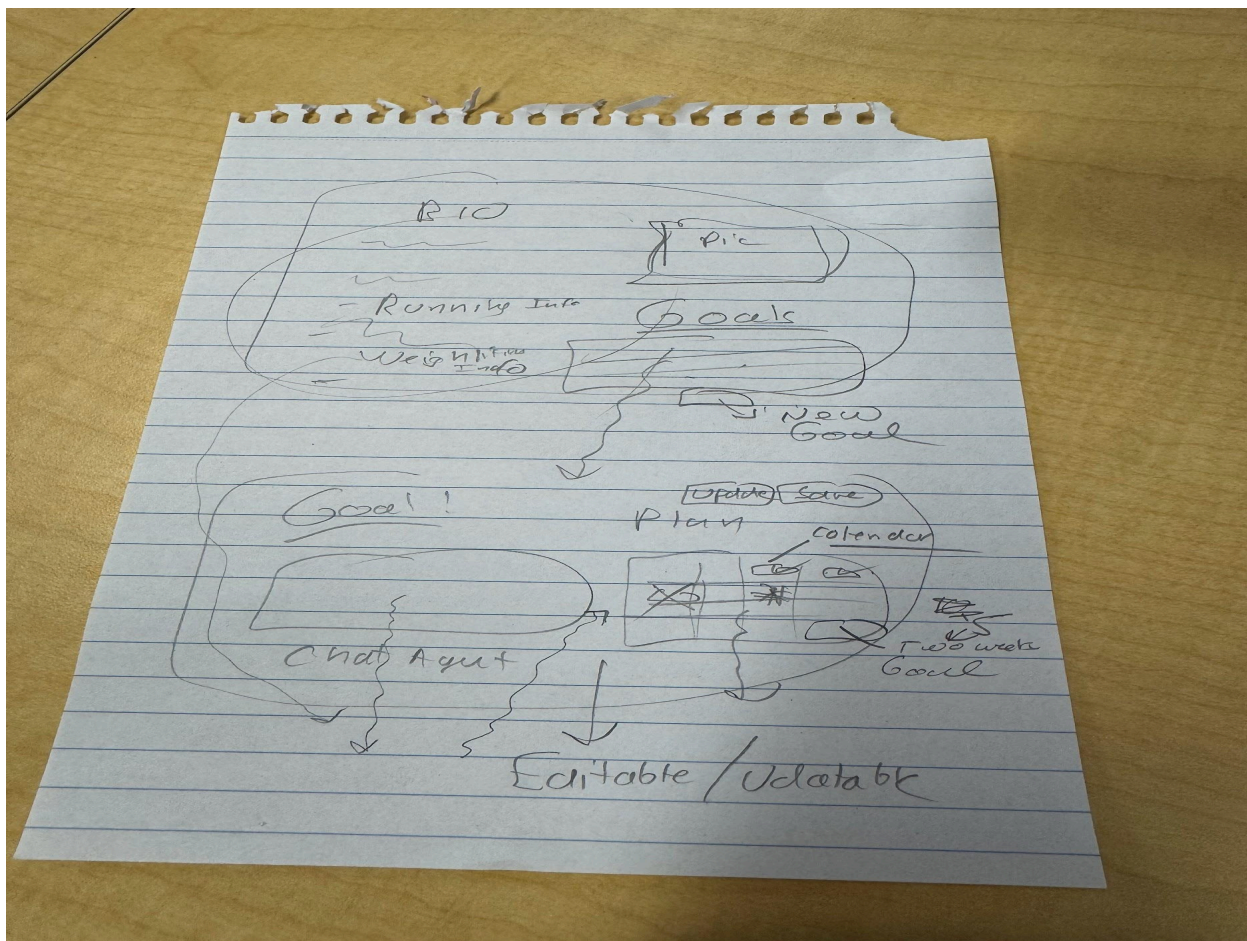 BIO
Pic
- Running Info
Goals
Weightlifting
Info
New
Goal
Goal!
Update Save
Plan
Calendar
Two week
Goal
Chat Agent
Editable / Udatable